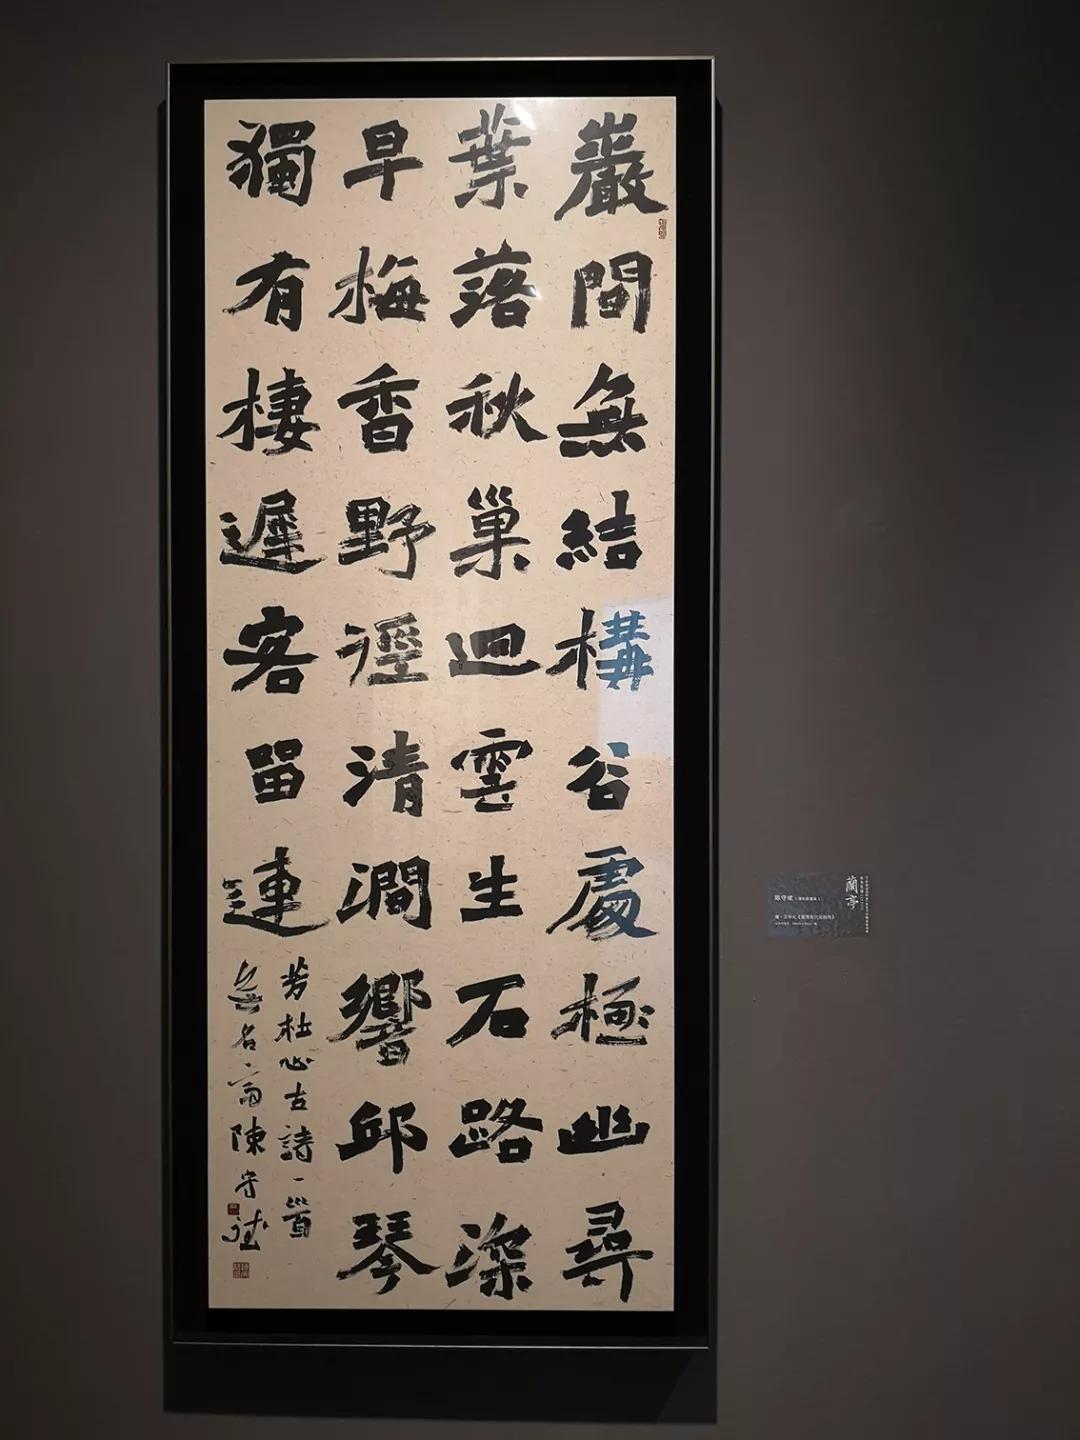 巖間無結構谷處極幽尋
葉落秋巢迥雲生石路深
早梅香野徑清澗響邱琴
獨有棲遲客留連
芳杜心古詩一首
無名翁陳守斌
蘭亭